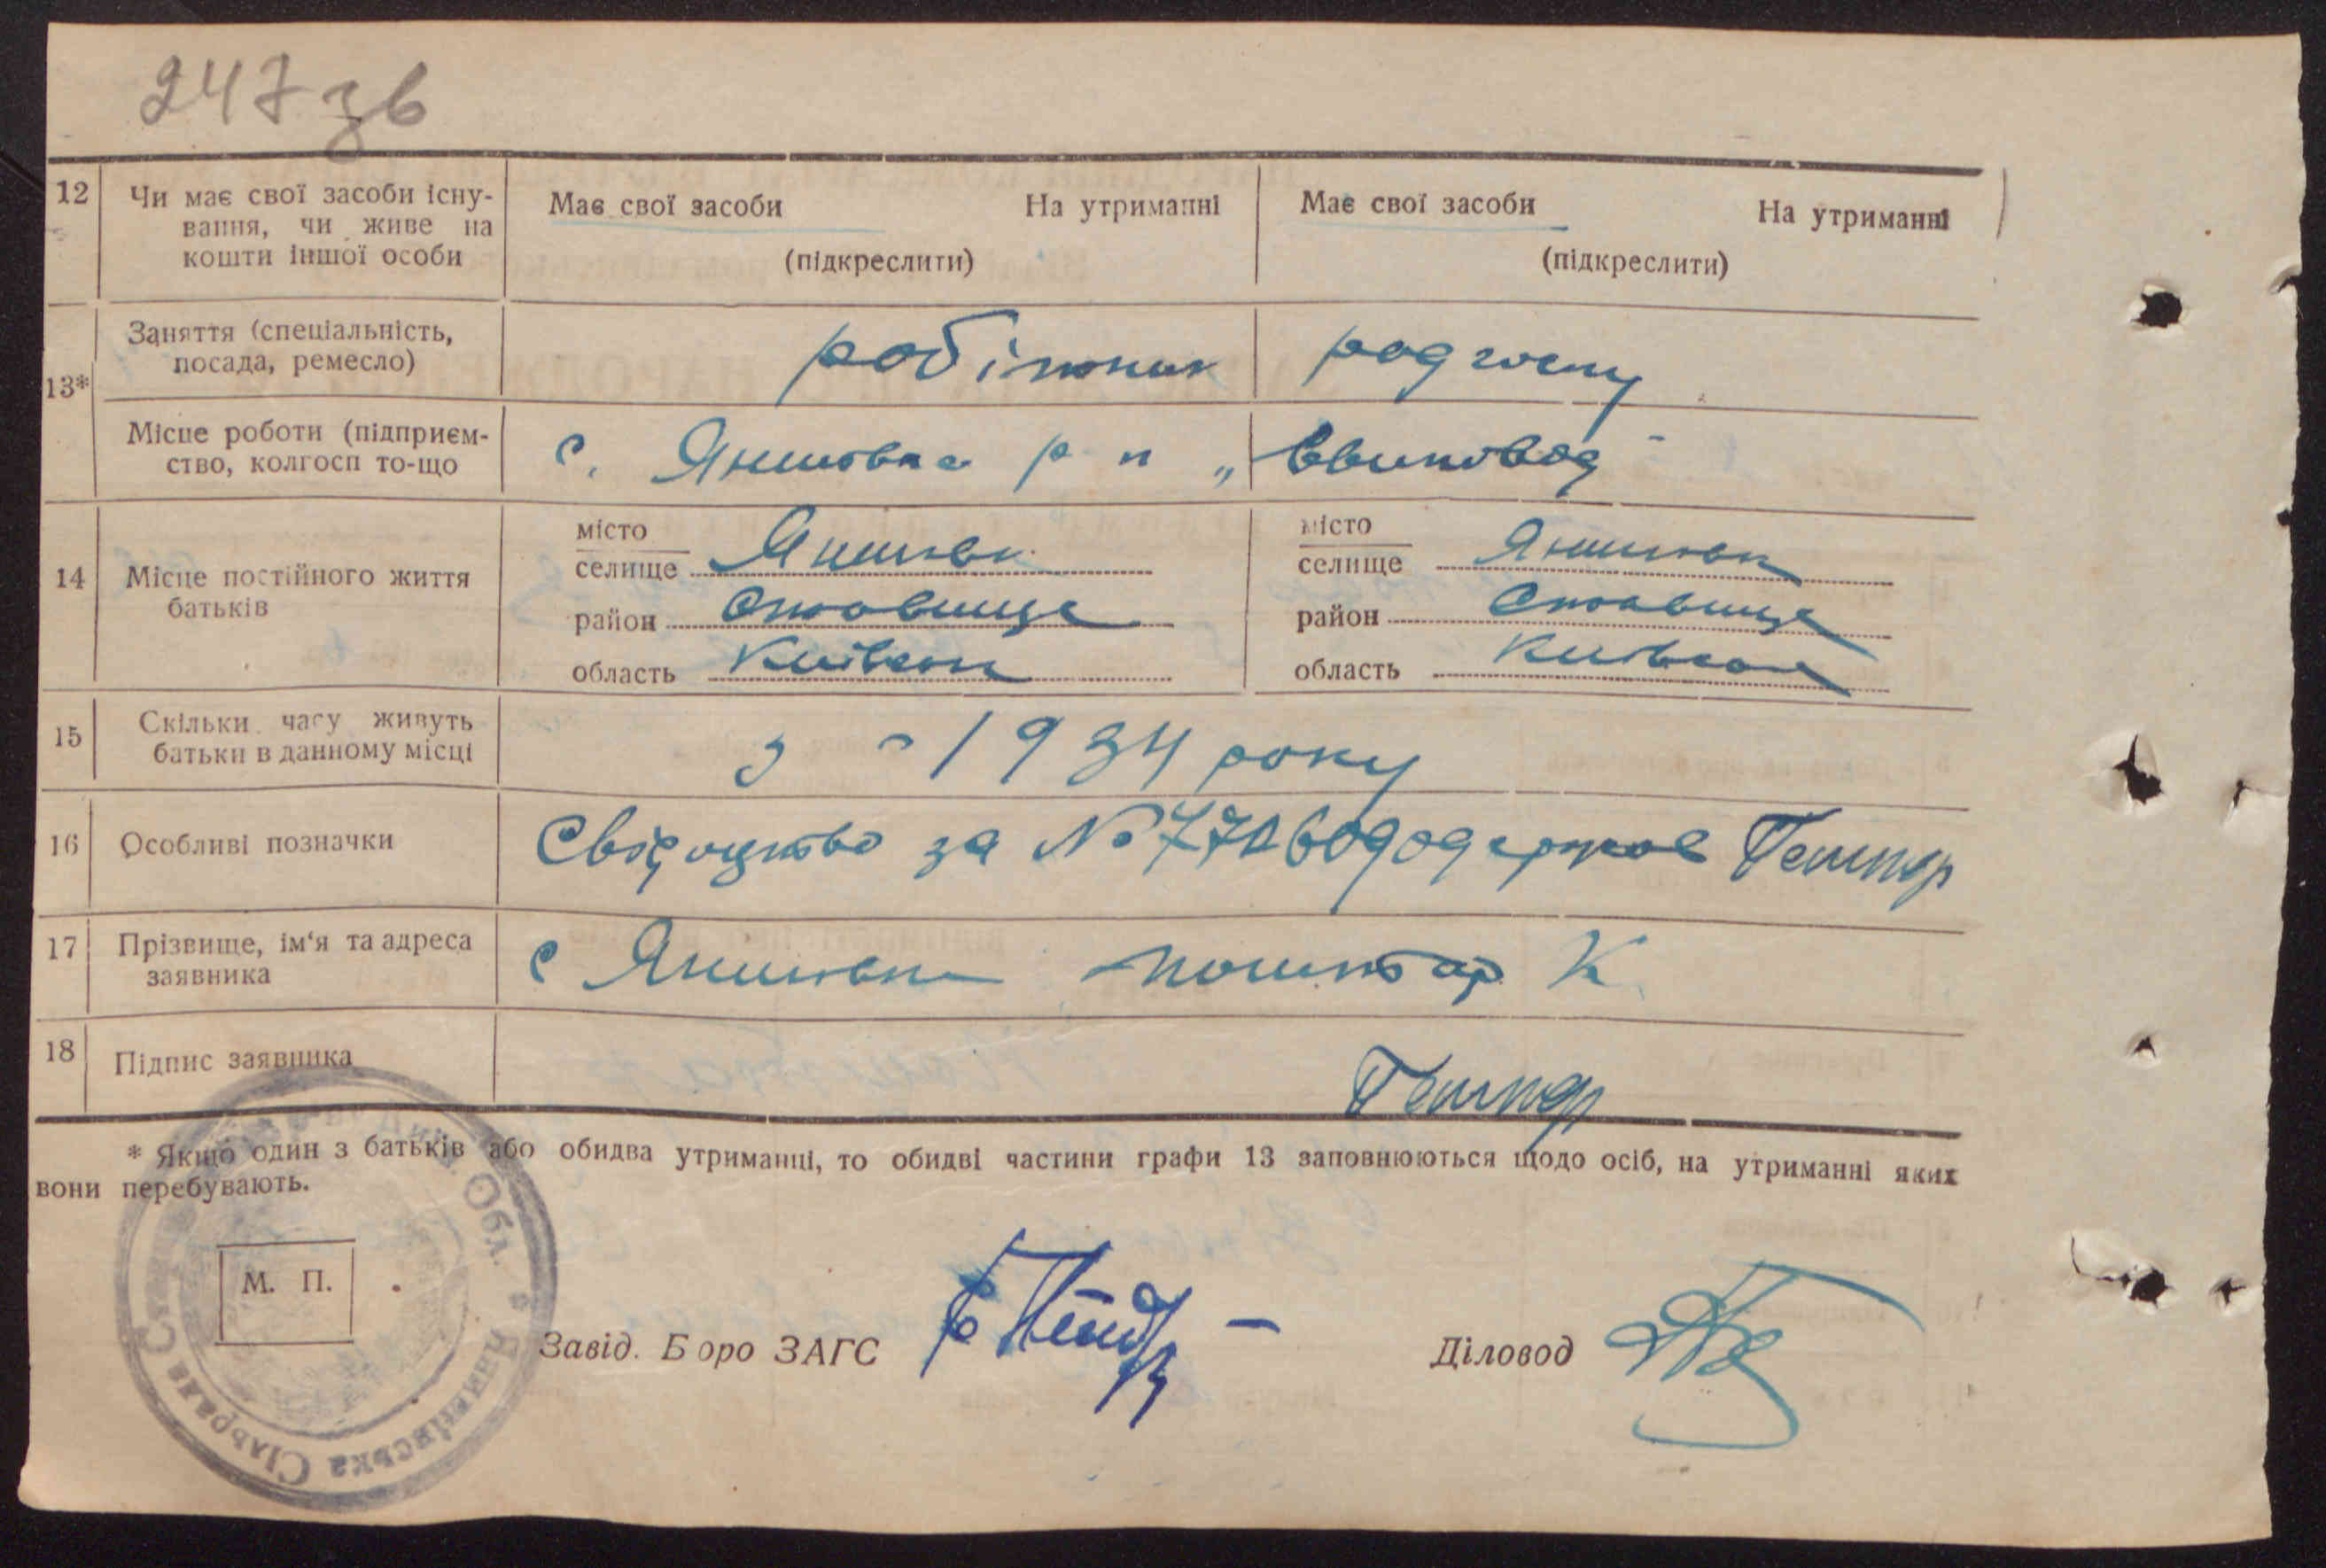 247 зв
12 Чи має свої засоби існу-
вання, чи живе на
кошти іншої особи
Має свої засоби На утриманні
(підкреслити)
Має свої засоби На утриманні
(підкреслити)
13*
Заняття (спеціальність,
посада, ремесло)
робітник радгоспу
Місце роботи (підприєм-
ство, колгосп то-що
с.
14 Місце постійного життя
батьків
місто
селище
район Ставище
область Київськ
місто
селище
район Ставище
область Київська
15 Скільки часу живуть
батьки в данному місці
з 1934 року
16 Особливі позначки
Свідоцтво за №
17 Прізвище, ім'я та адреса
заявника
с
К
18 Підпис заявника
* Якщо один з батьків або обидва утриманці, то обидві частини графи 13 заповнюються щодо осіб, на утриманні яких
вони перебувають.
М. П.
Завід. Бюро ЗАГС
Діловод
Сільрада
Обл.